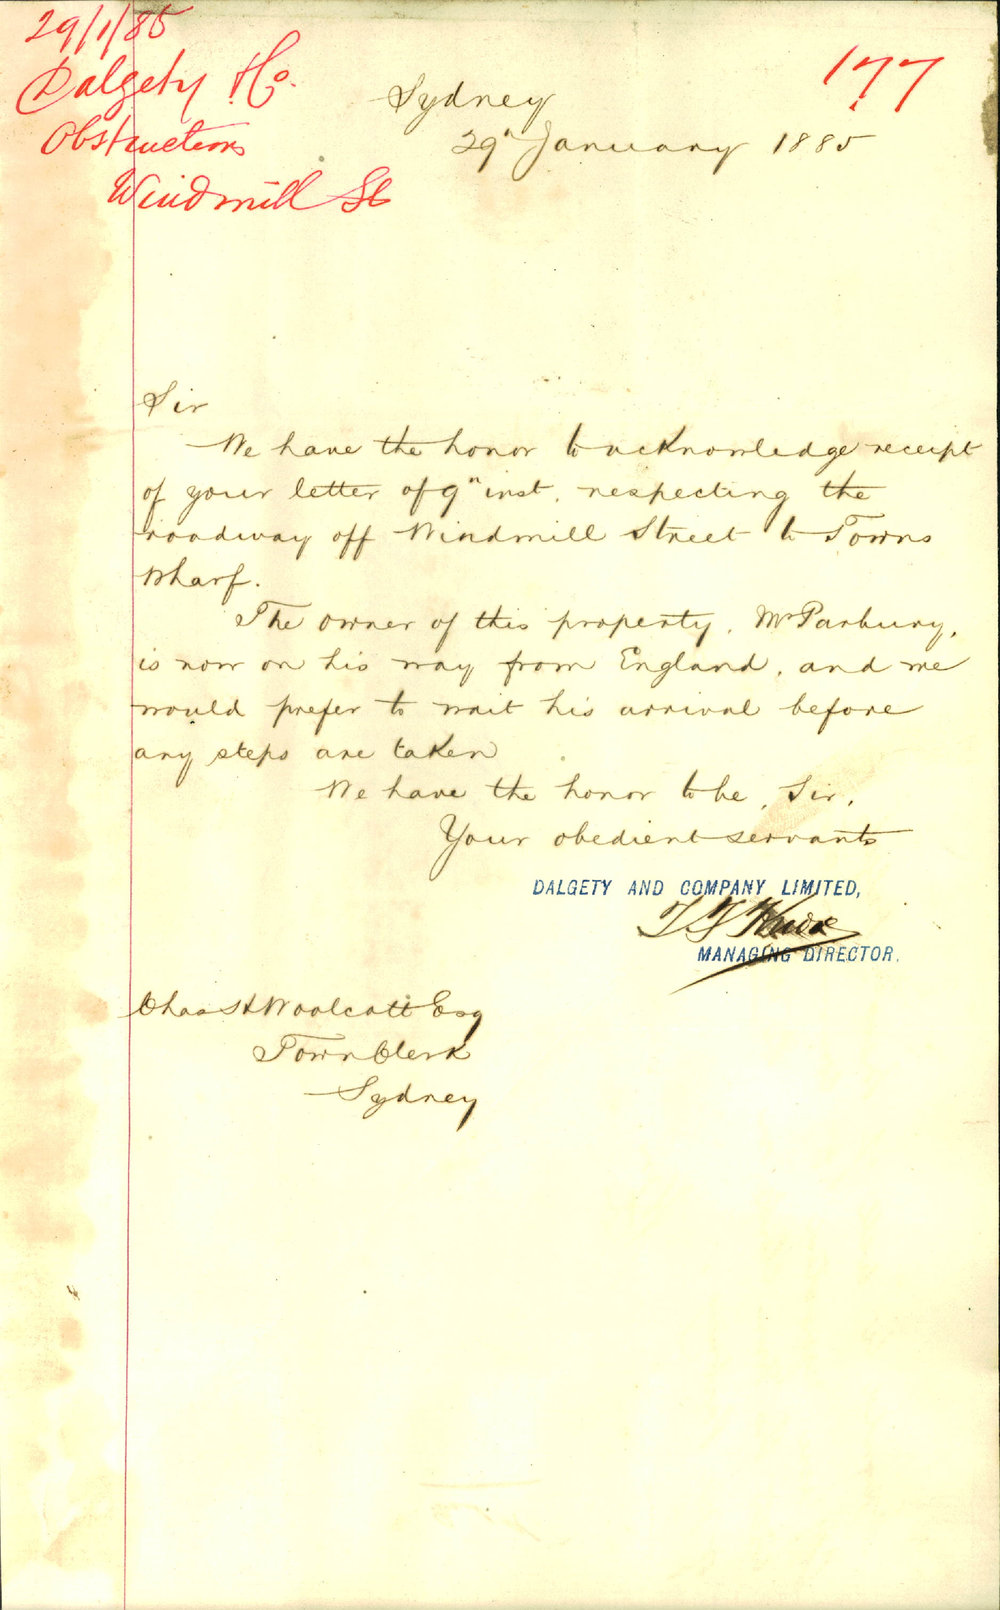 29/1/85
Dalgety & Co.
Obstructions
Windmill St
177
Sydney
29th January 1885
Sir
We have the honor to acknowledge receipt
of your letter of 9th inst, respecting the
roadway off Windmill Street to Towns
Wharf.
The owner of this property, Mr Parbury,
is now on his way from England, and we
would prefer to wait his arrival before
any steps are taken
We have the honor to be, Sir,
Your obedient servants
DALGETY AND COMPANY LIMITED,
MANAGING DIRECTOR.
Chas H Woolcott Esq
Town Clerk
Sydney